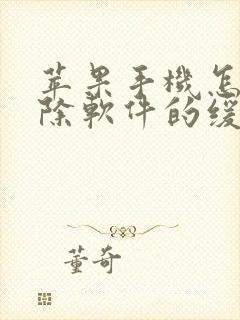 苹果手機怎
除軟件的缓
董奇